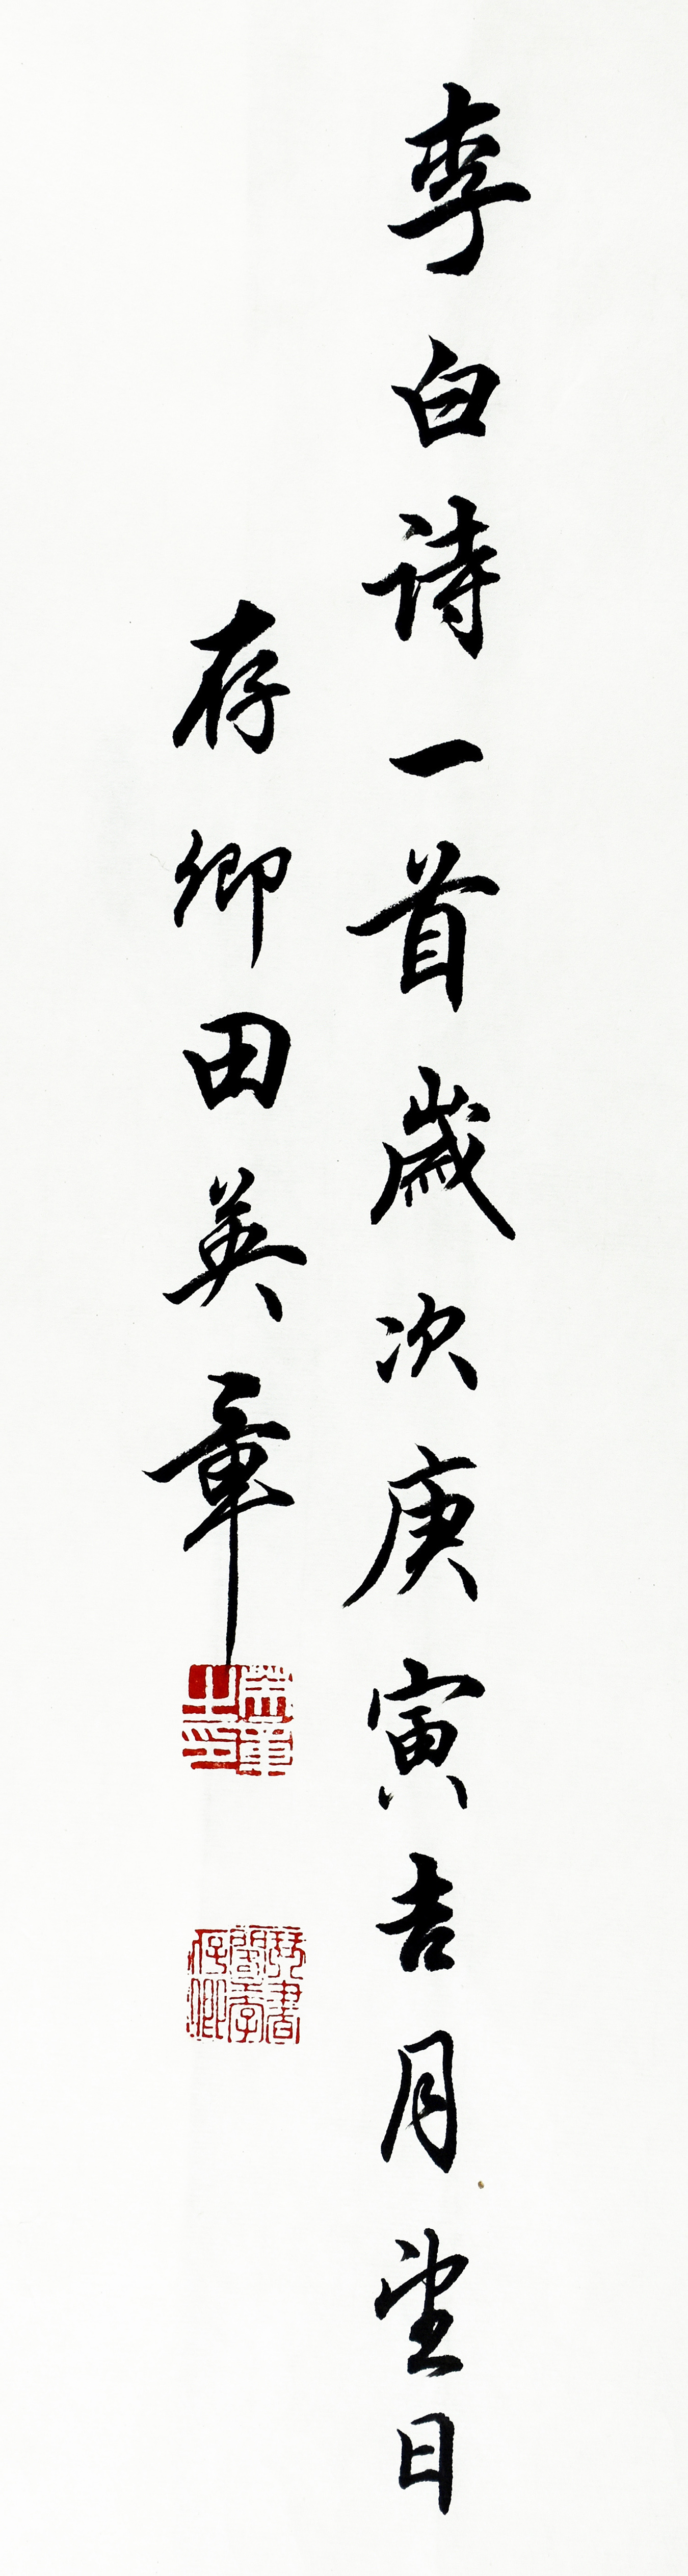 李白诗一首歳次庚寅吉月望日
存卿田英章